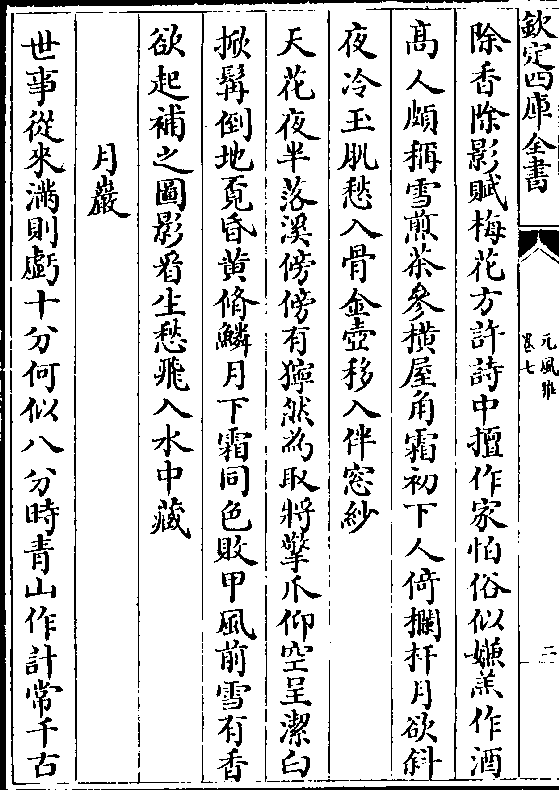 欽定四庫全書
元風雅
卷七
二
除香除影賦梅花方許詩中擅作家怕俗似嫌羔作酒
髙人頗稱雪煎茶參橫屋角霜初下人倚攔杆月欲斜
夜冷玉肌愁入骨金壺移入伴窓紗
天花夜半落溪傍傍有獰然為取將擎爪仰空呈潔白
掀髯倒地覔昏黄脩鱗月下霜同色敗甲風前雪有香
欲起補之圖影看生愁飛入水中藏
月巖
世事從來滿則虧十分何似八分時青山作計常千古